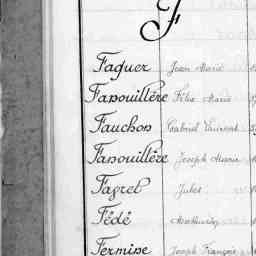 F
Faguer Jean Marie
Fanouillère Félix Marie
Fauchon Gabriel Laurent
Fanouillère Joseph Marie
Fayret Jules
Fédé Mathurin
Fermine Joseph François